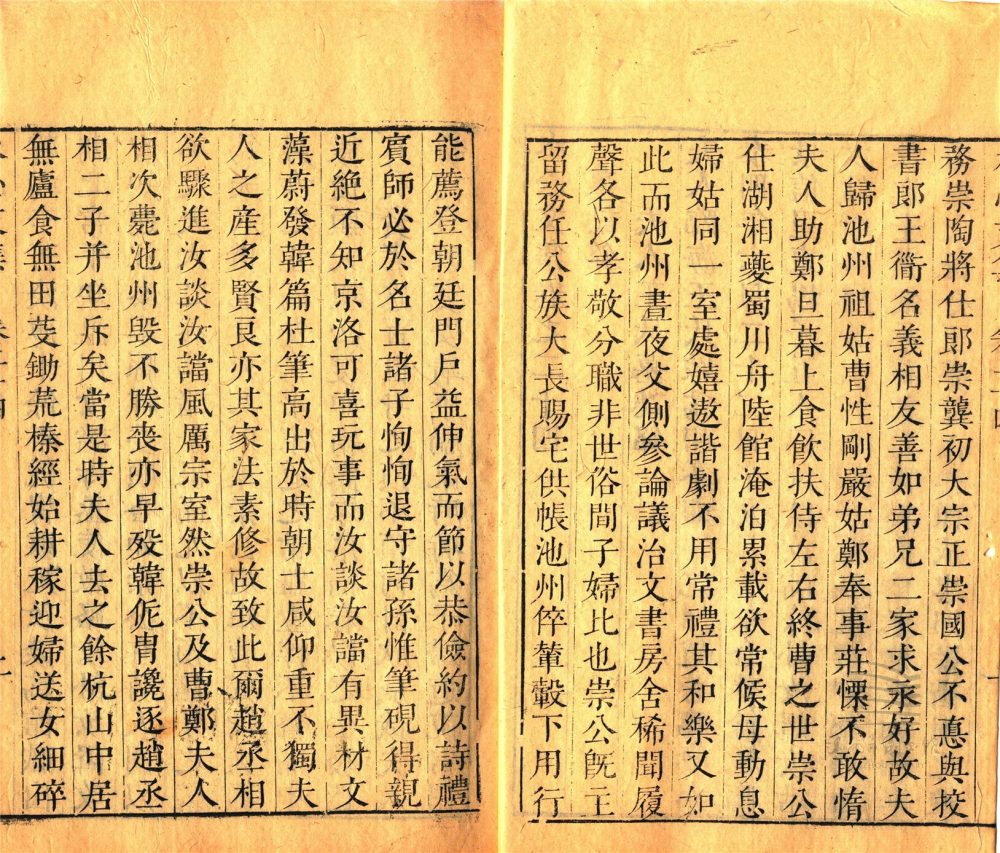 務崇陶將仕郎崇龔初大宗正崇國公不惪與校
書郎王衟名義相友善如弟兄二家求永好故夫
人歸池州祖姑曹性剛嚴姑鄭奉事莊慄不敢惰
夫人助鄭旦暮上食飲扶侍左右終曹之世崇公
仕湖湘夔蜀川舟陸館淹泊累載欲常候母動息
婦姑同一室處嬉遨諧劇不用常禮其和樂又如
此而池州晝夜父側參論議治文書房舍稀聞履
聲各以孝敬分職非世俗間子婦比也崇公旣主
留務任公族大長賜宅供帳池州倅輦轂下用行
能薦登朝廷門戶益伸氣而節以恭儉約以詩禮
賓師必於名士諸子恂恂退守諸孫惟筆硯得親
近絶不知京洛可喜玩事而汝談汝讜有異材文
藻蔚發韓篇杜筆高出於時朝士咸仰重不獨夫
人之產多賢良亦其家法素修故致此爾趙丞相
欲驟進汝談汝讜風厲宗室然崇公及曹鄭夫人
相次薨池州毀不勝喪亦早歿韓侂冑讒逐趙丞
相二子并坐斥矣當是時夫人去之餘杭山中居
無廬食無田芟鋤荒榛經始耕稼迎婦送女細碎